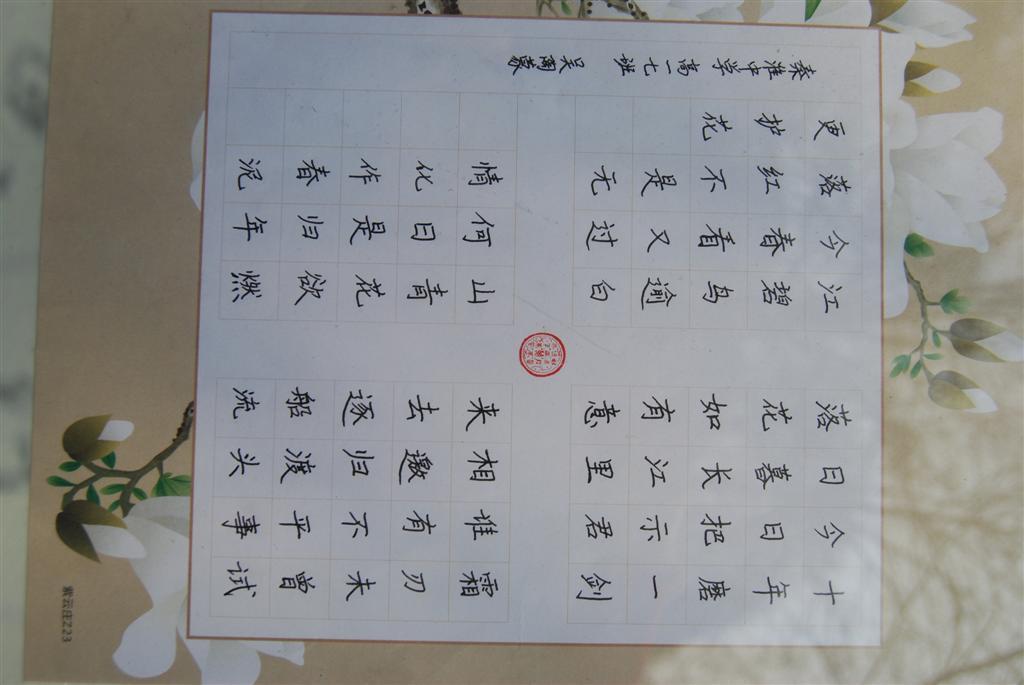 十年磨一剑 霜刃未曾试
今日把示君 谁有不平事
日暮长江里 相邀归渡头
落花如有意 来去逐船流
江碧鸟逾白 山青花欲燃
今春看又过 何日是归年
落红不是无 情化作春泥
更护花
秦淮中学 高一七班 吴陶蒙
紫云庄Z23